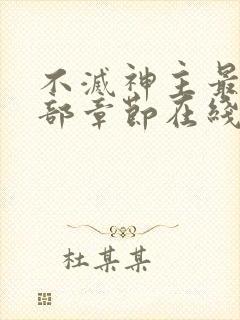 不滅神主最
部章節在綫
杜某某